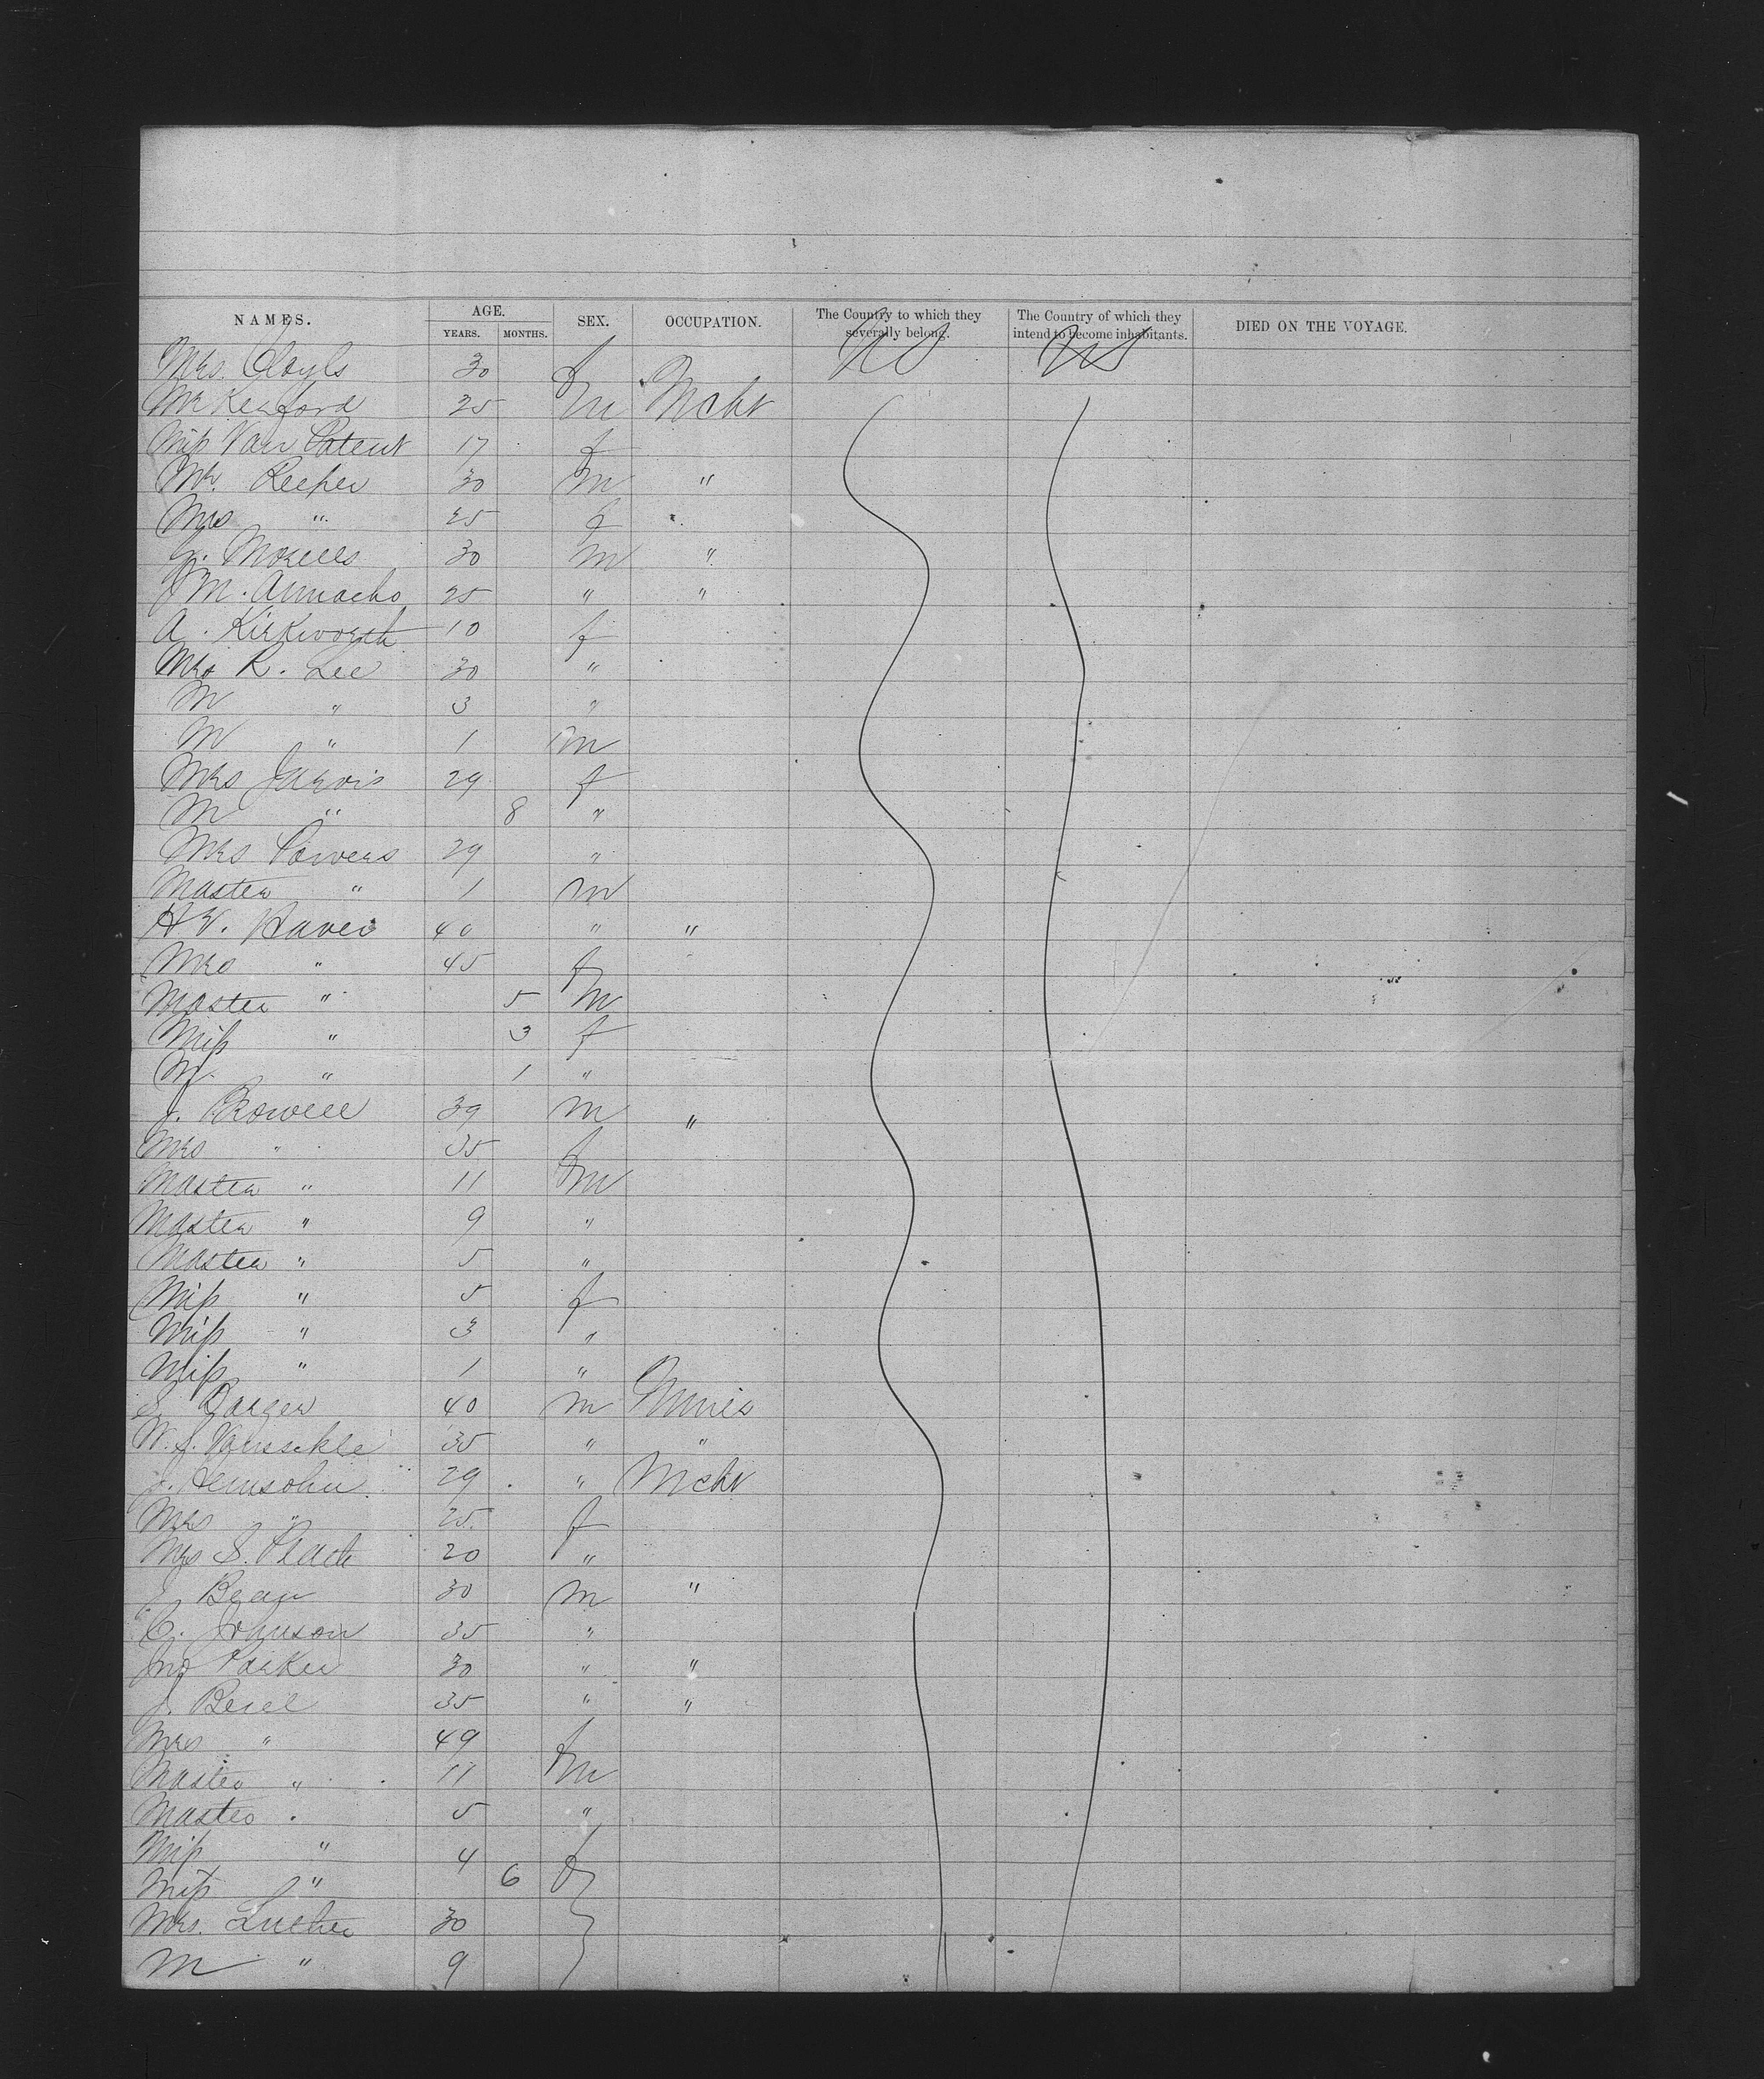 NAMES. AGE. YEARS. MONTHS. SEX. OCCUPATION. The Country to which they severally belong. The Country of which they intend to become inhabitants. DIED ON THE VOYAGE.
Mrs. 30 f US US
Mr 25 m Mcht
Miss Van Patent 17 f
Mr. Keefer 30 m "
Mrs " 25 f
30 m "
J M. 25 " "
A. Kirkworth 10 f
Mrs R. Lee 30 "
M " 3 "
M " 1 m
Mrs Jarvis 29 f
M " 8 "
Mrs Powers 29 "
Master " 1 m
H V. 40 " "
Mrs " 45 f
Master " 5 m
Miss " 3 f
M " 1 "
J. 39 m "
Mrs " 35 f
Master " 11 m
Master " 9 "
Master " 5 "
Miss " 5 f
Miss " 3 "
Miss " 1 "
S. Barger 40 m Miner
W. J. 35 " "
J. 29 " Mcht
Mrs " 25 f
Mrs S. 20 "
J Bean 30 m "
C. Johnson 35 "
Jno Parker 30 " "
J. 35 " "
Mrs " 49 f
Master " 11 m
Master " 5 "
Miss " 4 f
Miss " 6
Mrs. Luther 30
M " 9